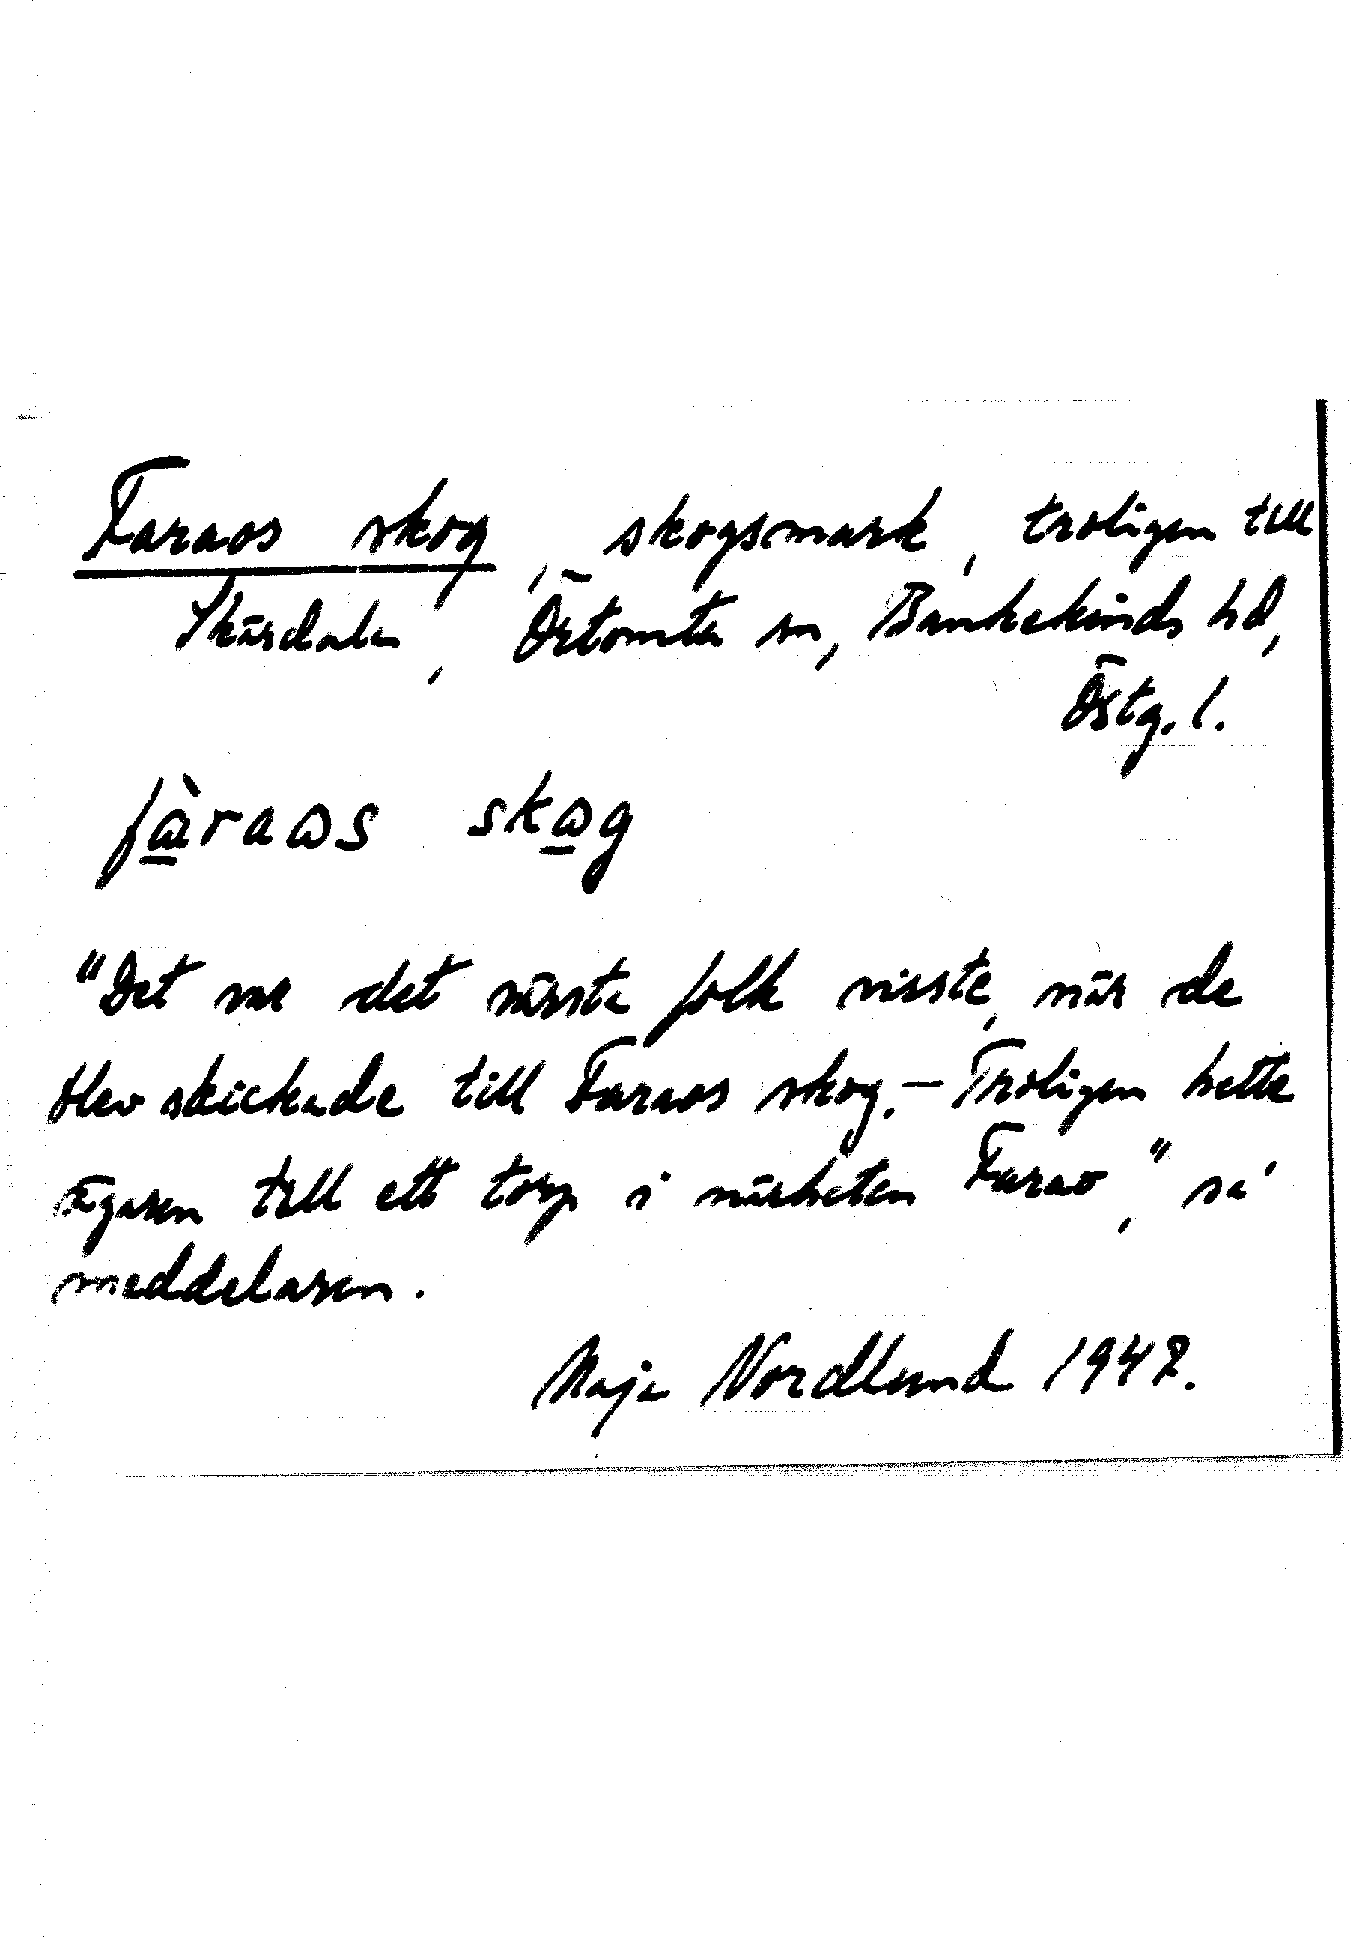 Faraos skog, skogsmark, troligen till
Skärdala, Örtomta sn, Bankekinds hd,
Östg. l.
fàraωs skωg
"Det var det värsta folk visste, när de
blev skickade till Faraos skog. – Troligen hette
ägaren till ett torp i närheten Farao," sa'
meddelaren.
Maja Nordlund 1947.